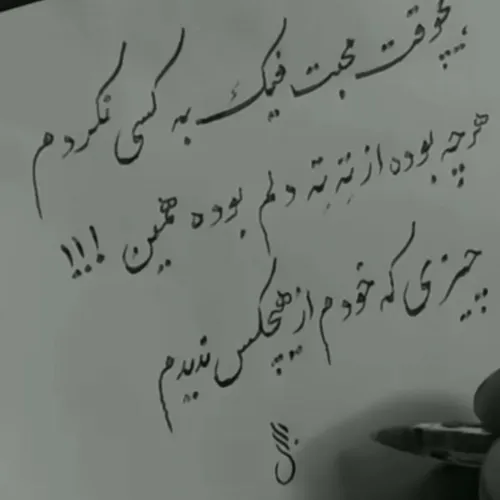 هیچوقت محبت فیک به کسی نکردم
هرچه بوده از تهِ تهِ دلم بوده همین !!!
چیزی که خودم از هیچکس ندیدم